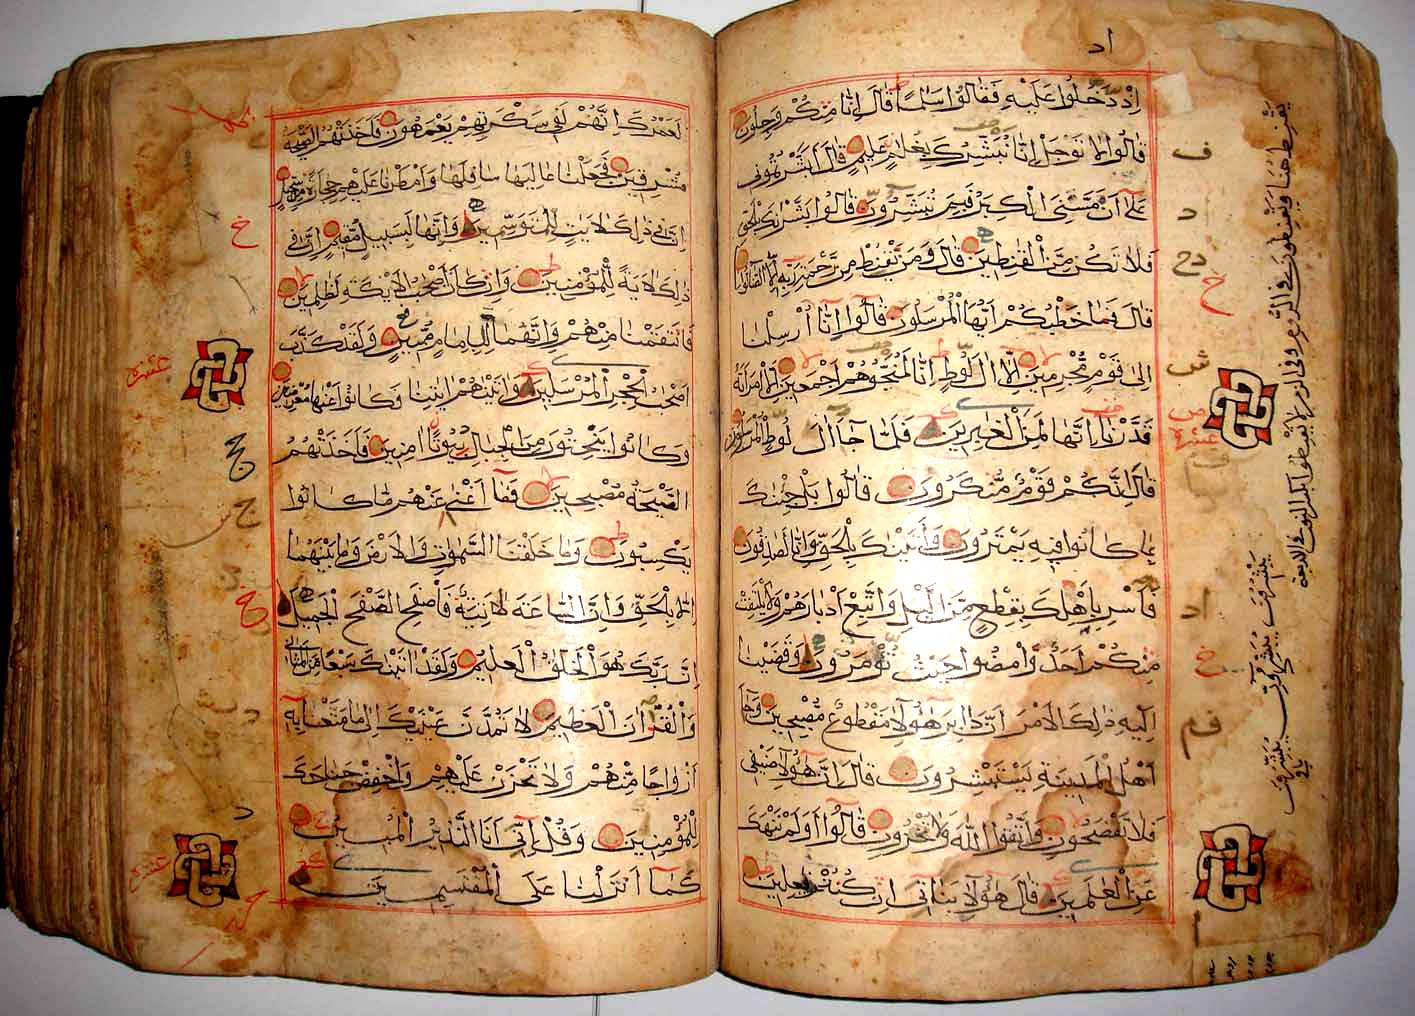 اد
اِذْ دَّخَلُوا عَلَيْهِ فَقَالُوا سَلٰمًا قَالَ اِنَّا مِنْكُمْ وَجِلُونَ
قَالُوا لَا تَوْجَلْ اِنَّا نُبَشِّرُكَ بِغُلٰمٍ عَلِيمٍ قَالَ اَبَشَّرْتُمُونِي
عَلٰٓى اَنْ مَّسَّنِيَ الْكِبَرُ فَبِمَ تُبَشِّرُونَ قَالُوا بَشَّرْنٰكَ بِالْحَقِّ
فَلَا تَكُنْ مِّنَ الْقٰنِطِينَ قَالَ وَمَنْ يَّقْنَطُ مِنْ رَّحْمَةِ رَبِّهِ اِلَّا الضَّالُّونَ
قَالَ فَمَا خَطْبُكُمْ اَيُّهَا الْمُرْسَلُونَ قَالُوٓا اِنَّٓا اُرْسِلْنَا
اِلٰى قَوْمٍ مُّجْرِمِينَ اِلَّٓا اٰلَ لُوطٍ اِنَّا لَمُنَجُّوهُمْ اَجْمَعِينَ اِلَّا امْرَاَتَهُ
قَدَّرْنَا اِنَّهَا لَمِنَ الْغٰبِرِينَ فَلَمَّا جَآ اٰلَ لُوطٍ الْمُرْسَلُونَ
قَالَ اِنَّكُمْ قَوْمٌ مُّنْكَرُونَ قَالُوا بَلْ جِئْنٰكَ
بِمَا كَانُوا فِيهِ يَمْتَرُونَ وَاَتَيْنٰكَ بِالْحَقِّ وَاِنَّا لَصٰدِقُونَ
فَاَسْرِ بِاَهْلِكَ بِقِطْعٍ مِّنَ الَّيْلِ وَاتَّبِعْ اَدْبَارَهُمْ وَلَا يَلْتَفِتْ
مِنْكُمْ اَحَدٌ وَّامْضُوا حَيْثُ تُؤْمَرُونَ وَقَضَيْنَا
اِلَيْهِ ذٰلِكَ الْاَمْرَ اَنَّ دَابِرَ هٰٓؤُلَآ مَقْطُوعٌ مُّصْبِحِينَ وَجَآ
اَهْلُ الْمَدِينَةِ يَسْتَبْشِرُونَ قَالَ اِنَّ هٰٓؤُلَآ ضَيْفِي
فَلَا تَفْضَحُونِ وَاتَّقُوا اللّٰهَ وَلَا تُخْزُونِ قَالُوٓا اَوَلَمْ نَنْهَكَ
عَنِ الْعٰلَمِينَ قَالَ هٰٓؤُلَآ بَنَاتِي اِنْ كُنْتُمْ فٰعِلِينَ
ف
د
دح
خ
ش
عشرة
اد
خ
فم
لَعَمْرُكَ اِنَّهُمْ لَفِي سَكْرَتِهِمْ يَعْمَهُونَ فَاَخَذَتْهُمُ الصَّيْحَةُ
مُشْرِقِينَ فَجَعَلْنَا عَالِيَهَا سَافِلَهَا وَاَمْطَرْنَا عَلَيْهِمْ حِجَارَةً مِّنْ سِجِّيلٍ
اِنَّ فِي ذٰلِكَ لَاٰيٰتٍ لِّلْمُتَوَسِّمِينَ وَاِنَّهَا لَبِسَبِيلٍ مُّقِيمٍ اِنَّ فِي
ذٰلِكَ لَاٰيَةً لِّلْمُؤْمِنِينَ وَاِنْ كَانَ اَصْحٰبُ الْاَيْكَةِ لَظٰلِمِينَ
فَانْتَقَمْنَا مِنْهُمْ وَاِنَّهُمَا لَبِاِمَامٍ مُّبِينٍ وَلَقَدْ كَذَّبَ
اَصْحٰبُ الْحِجْرِ الْمُرْسَلِينَ وَاٰتَيْنٰهُمْ اٰيٰتِنَا فَكَانُوا عَنْهَا مُعْرِضِينَ
وَكَانُوا يَنْحِتُونَ مِنَ الْجِبَالِ بُيُوتًا اٰمِنِينَ فَاَخَذَتْهُمُ
الصَّيْحَةُ مُصْبِحِينَ فَمَآ اَغْنٰى عَنْهُمْ مَّا كَانُوا
يَكْسِبُونَ وَمَا خَلَقْنَا السَّمٰوٰتِ وَالْاَرْضَ وَمَا بَيْنَهُمَا
اِلَّا بِالْحَقِّ وَاِنَّ السَّاعَةَ لَاٰتِيَةٌ فَاصْفَحِ الصَّفْحَ الْجَمِيلَ
اِنَّ رَبَّكَ هُوَ الْخَلّٰقُ الْعَلِيمُ وَلَقَدْ اٰتَيْنٰكَ سَبْعًا مِّنَ الْمَثَانِي
وَالْقُرْاٰنَ الْعَظِيمَ لَا تَمُدَّنَّ عَيْنَيْكَ اِلٰى مَا مَتَّعْنَا بِهِ
اَزْوَاجًا مِّنْهُمْ وَلَا تَحْزَنْ عَلَيْهِمْ وَاخْفِضْ جَنَاحَكَ
لِلْمُؤْمِنِينَ وَقُلْ اِنِّٓي اَنَا النَّذِيرُ الْمُبِينُ
كَمَآ اَنْزَلْنَا عَلَى الْمُقْتَسِمِينَ
خ
عشرة
ج
خ
د
عشرة